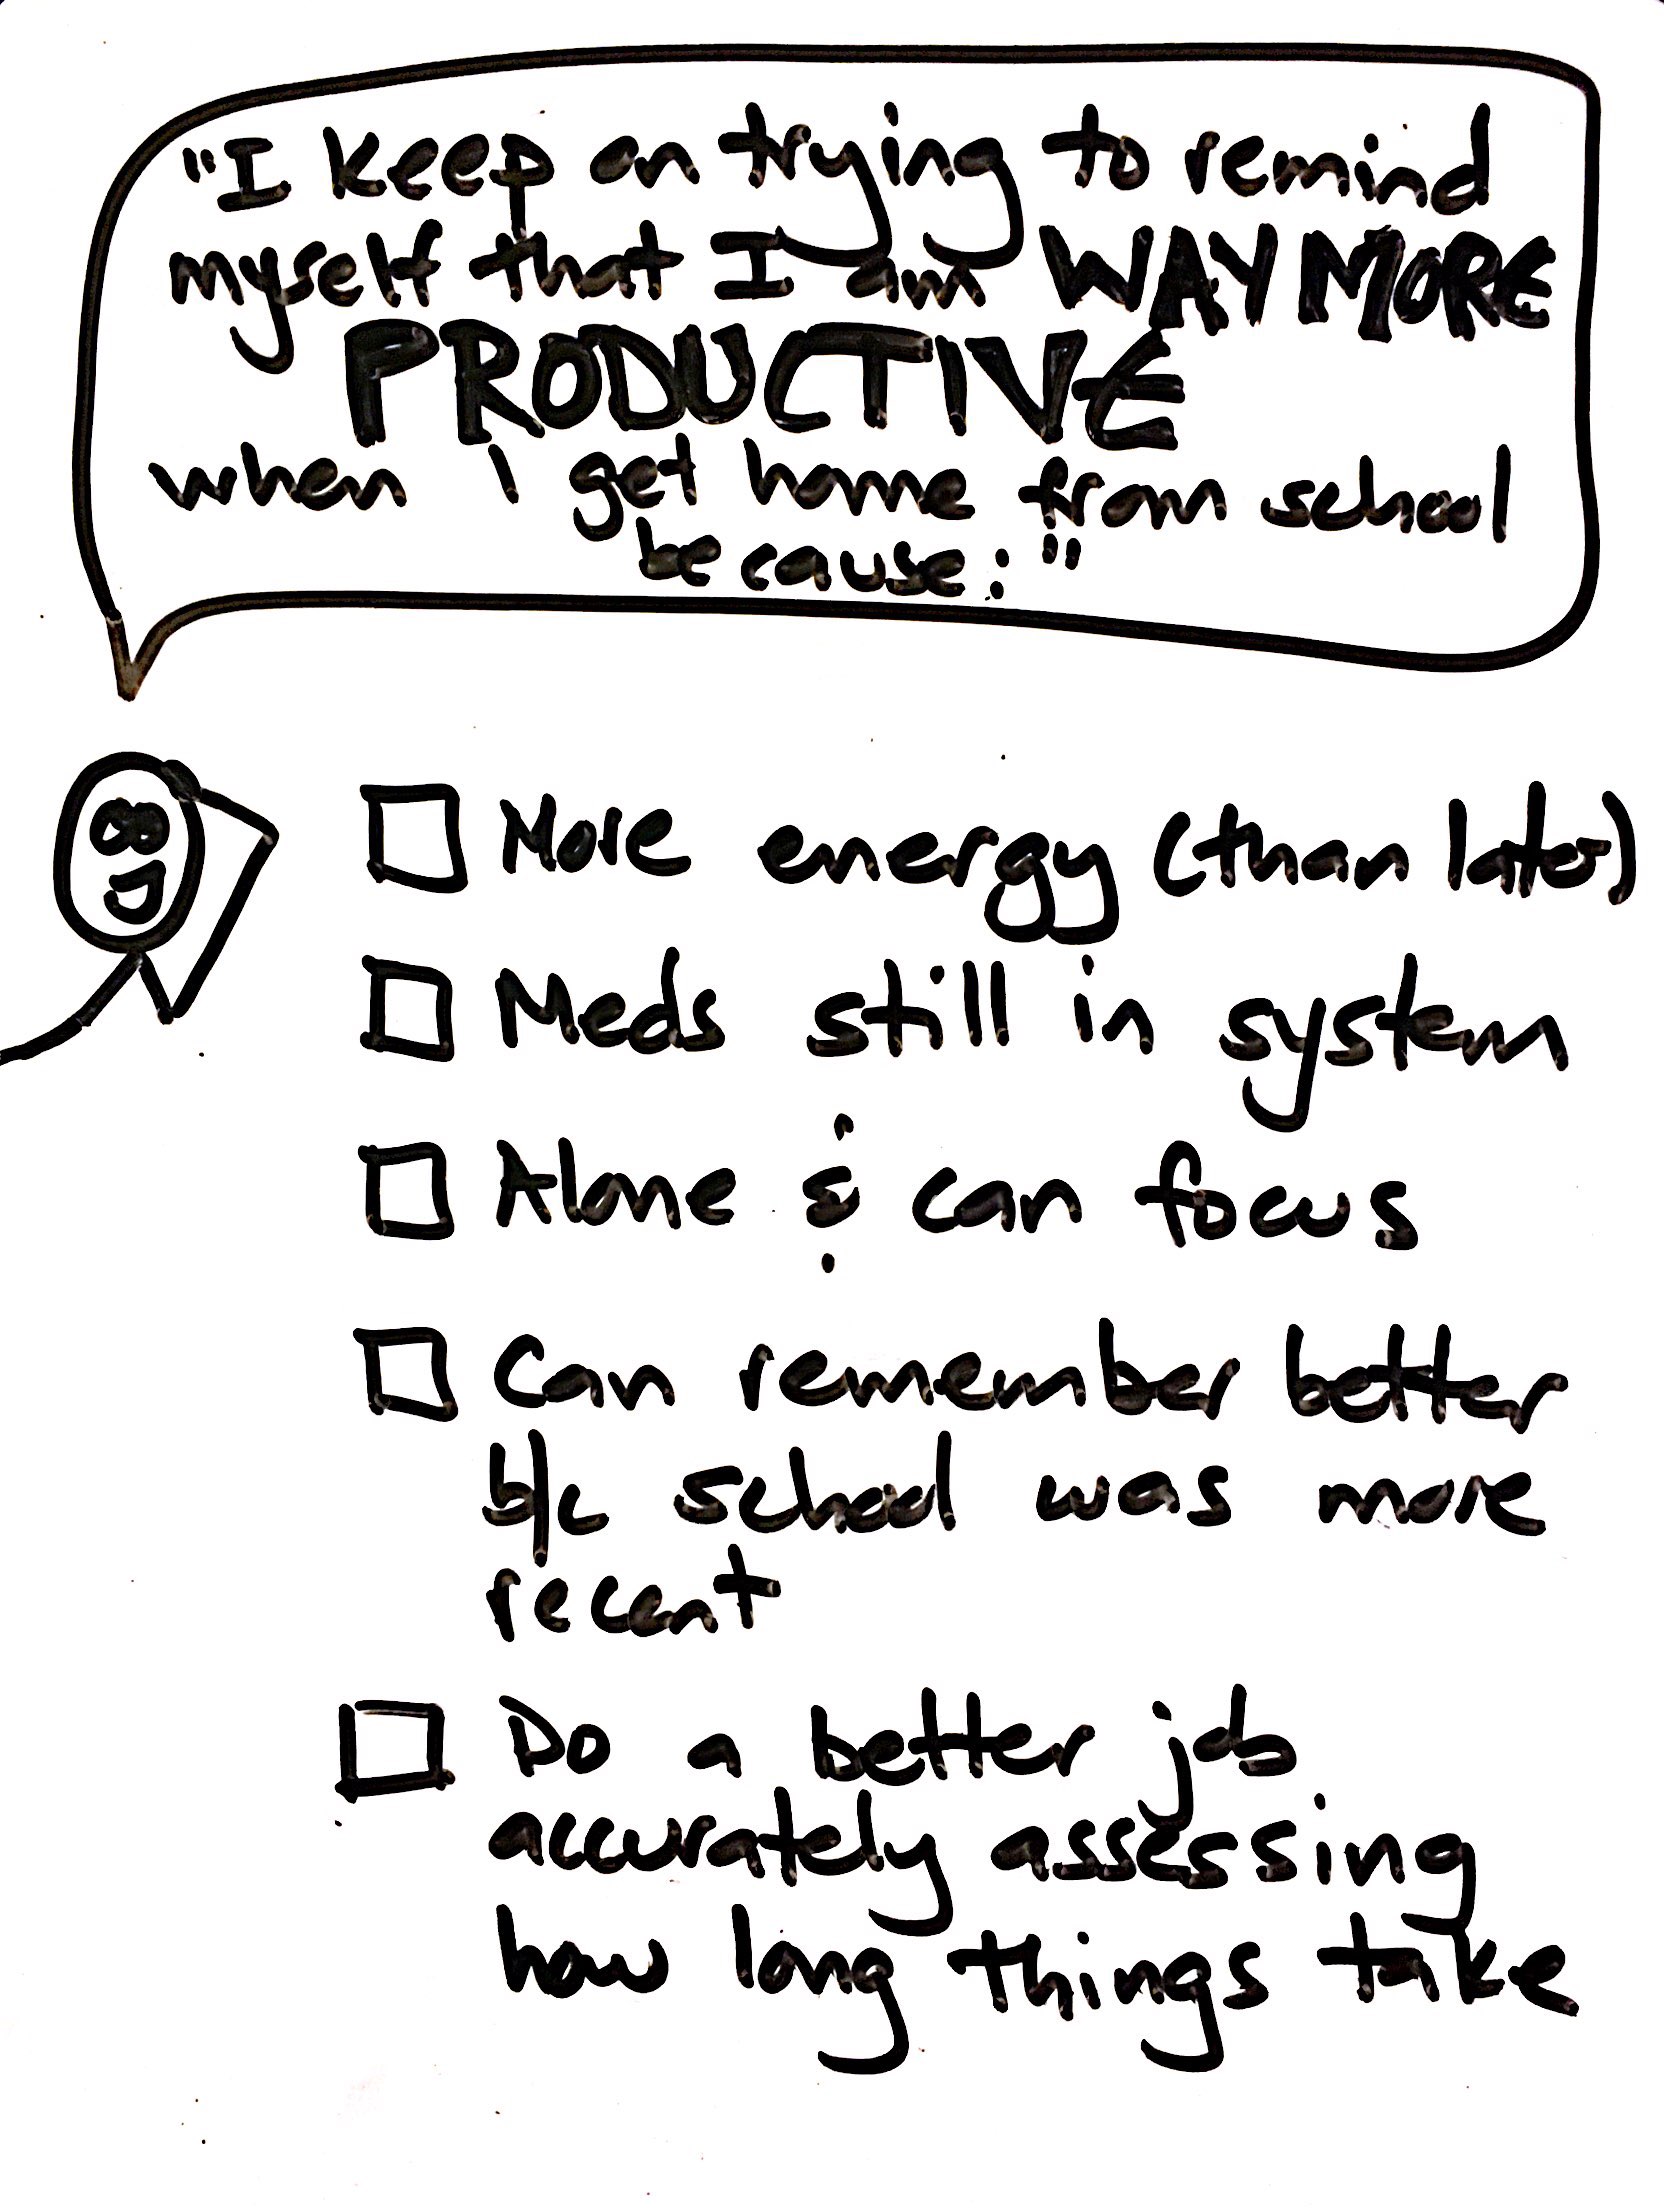 "I keep on trying to remind
myself that I am WAY MORE
PRODUCTIVE
when I get home from school
because:"
More energy (than later)
Meds still in system
Alone & can focus
Can remember better
b/c school was more
recent
Do a better job
accurately assessing
how long things take